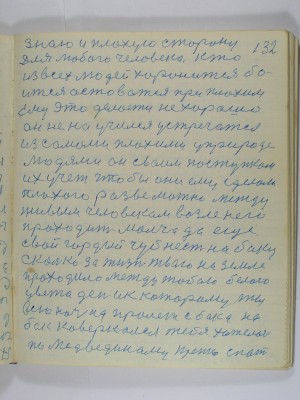 132
знаю и плохую сторону
для любого человека, кто
из всех людей хоронится бо-
ится остоватся при плохим
ему это делоеть не хорошо
он не на учился устречатся
из самоми плохими у природе
людями он своим поступком
их учет чтобы они ему сделали
плохого разве можно между
живым человекам возле него
проходит молча да еще
свой гордый чуб нест на баку
сколко за тизн твою на земле
проходило между тобою белого
света ден их которому
всю ноч на пролет с бака на
бак коверкался тебя хотелос
по медвединаму преть спат